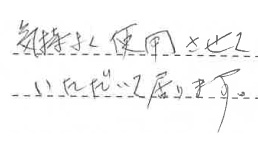 気持よく使用させて
いただいて居ります。